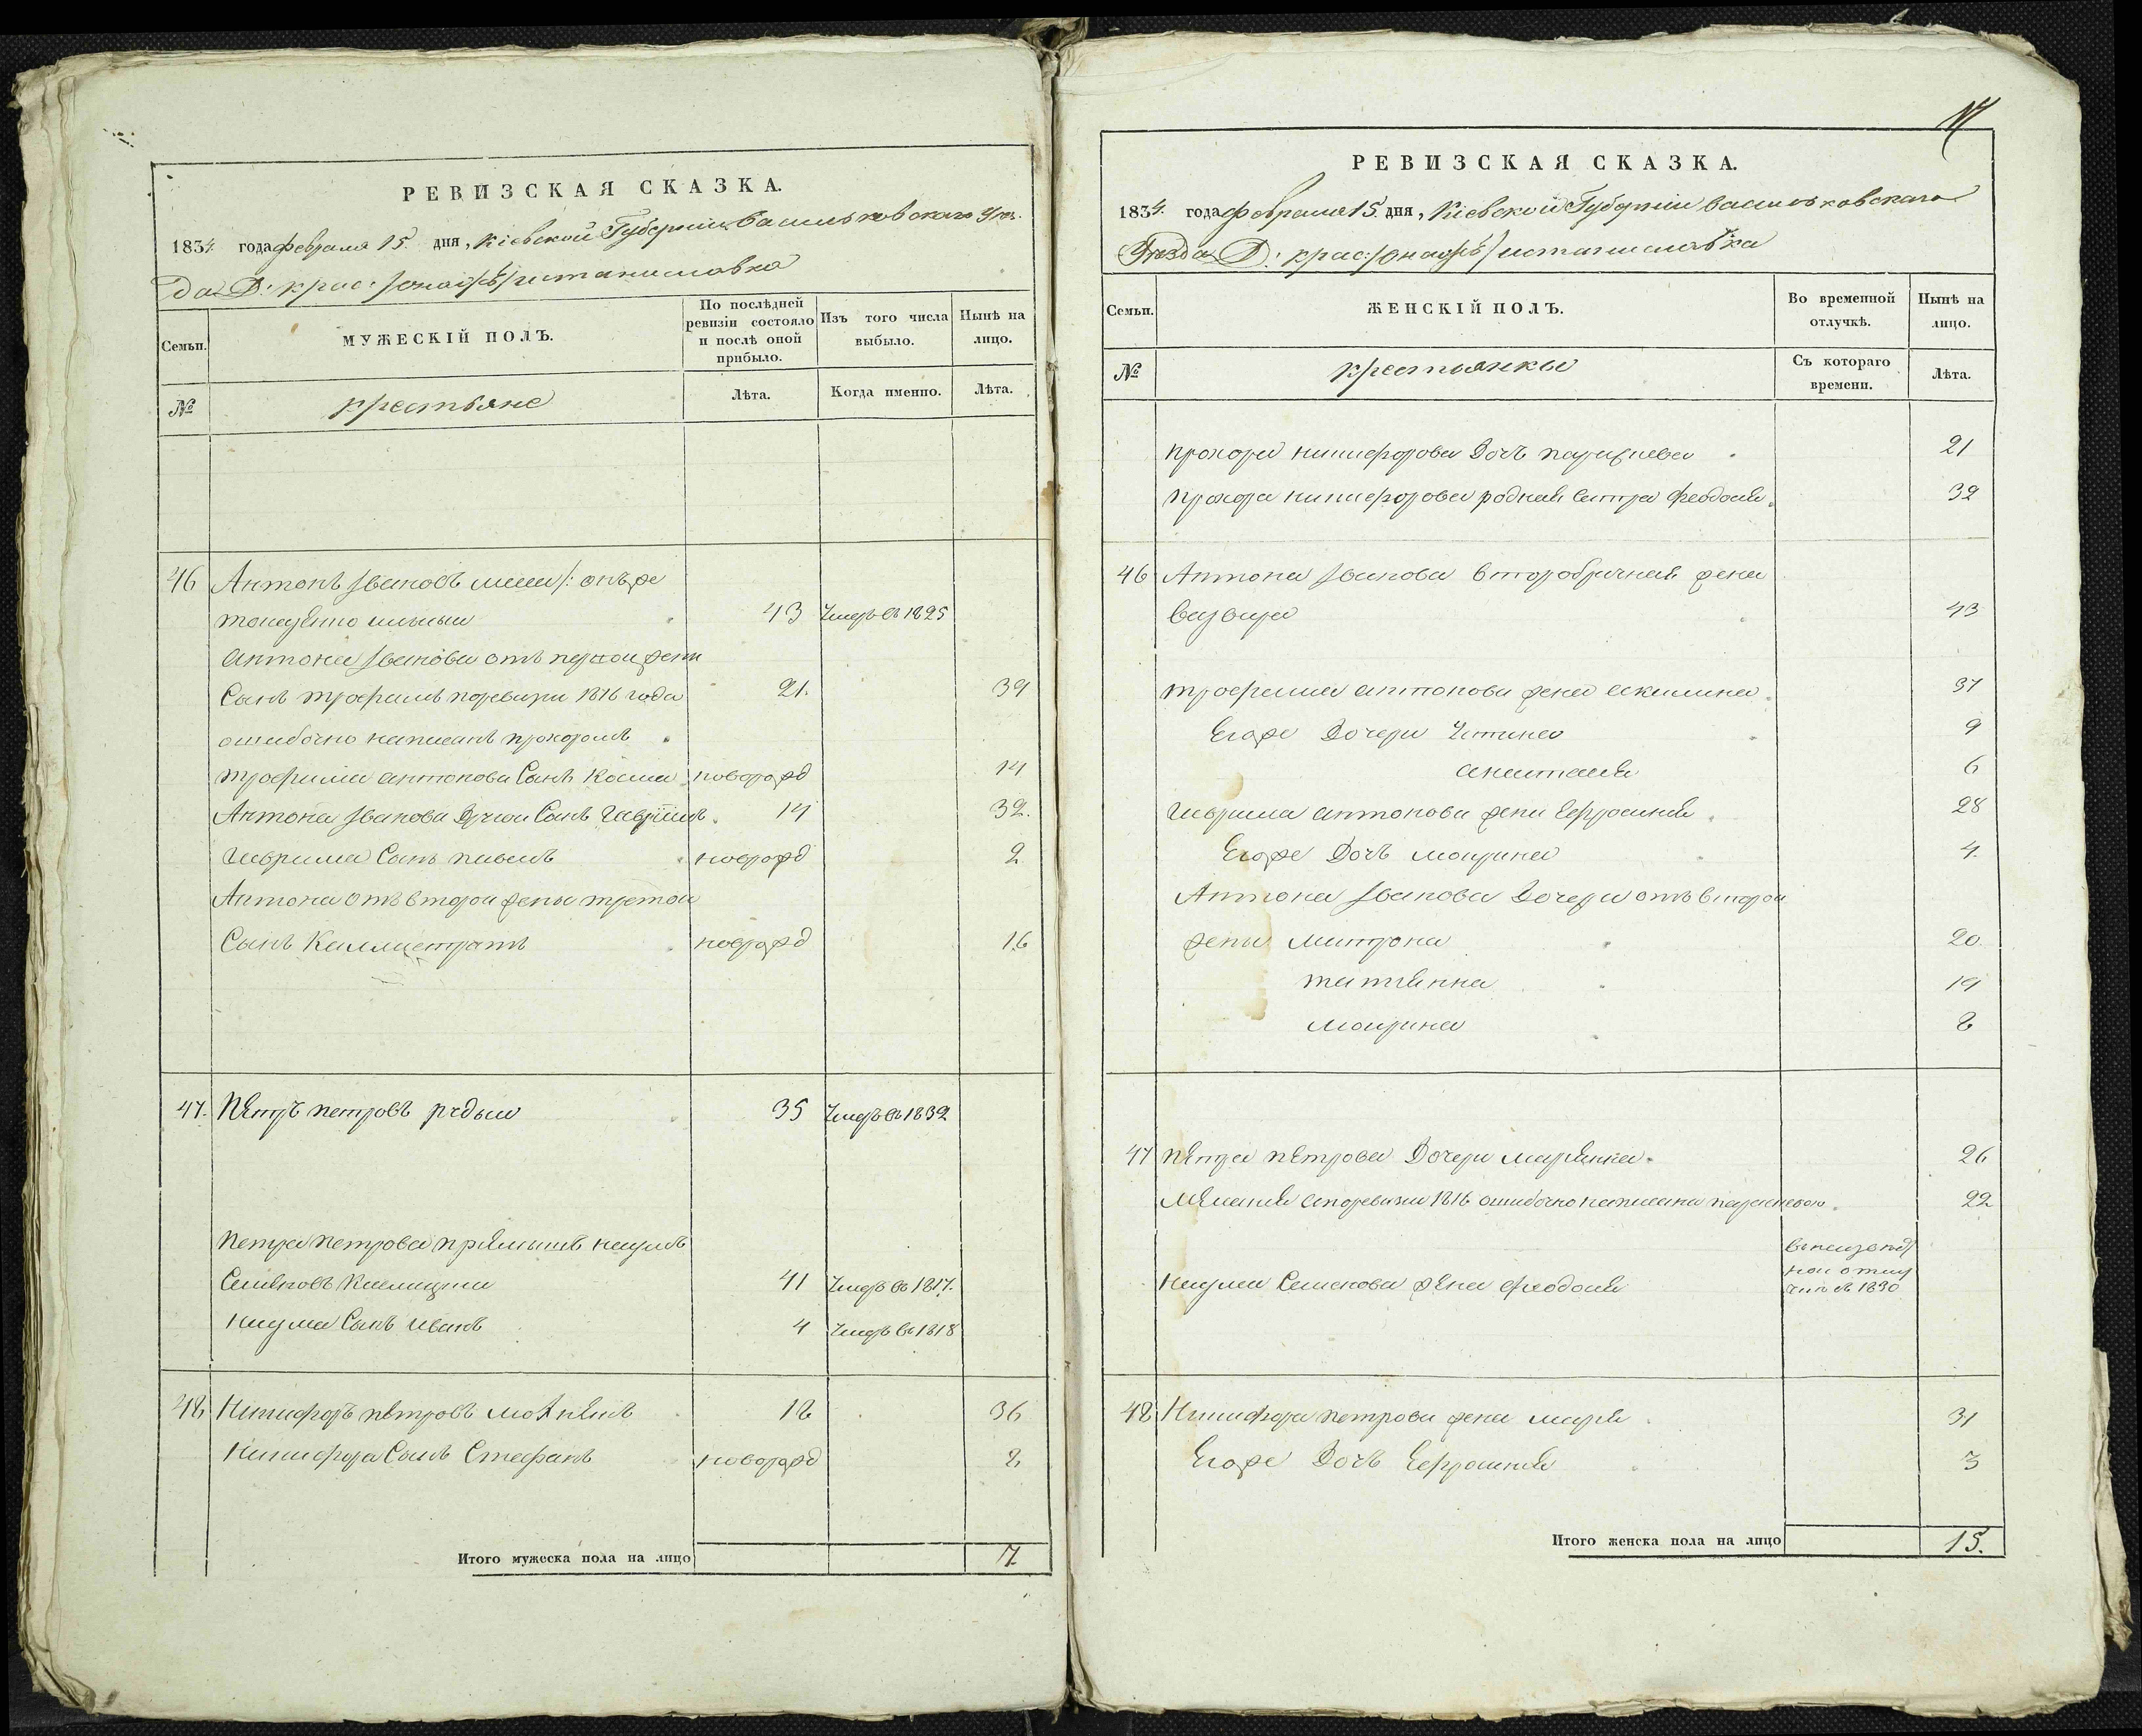 РЕВИЗСКАЯ СКАЗКА.
1834 года февраля 15 дня, Кіевской Губерніи Васильковскаго Уѣз.
да Д: крас: станиславка
Семьи.
МУЖЕСКІЙ ПОЛЪ.
По послѣдней ревизіи состояло и послѣ оной прибыло.
Изъ того числа выбыло.
Нынѣ на лицо.
№
крестьяне
Лѣта.
Когда именно.
Лѣта.
46 Антонъ Ивановъ онъ же
43 Умеръ въ 1825
Антона Иванова отъ первой жены
Сынъ трофимъ поревизіи 1816 года 21. 39
ошибочно написанъ прохоромъ
трофима антонова Сынъ Косма новорожд 14
Антона Иванова Другой Сынъ Гаврiилъ 14 32.
Гаврила Сынъ павелъ новорожд 2
Антона отъ второй жены третой
Сынъ Каллистратъ новорожд 16
47. Петръ петровъ рудый 35 Умеръ въ 1832
Петра петрова пріемышъ наумъ
Семеновъ 41 Умеръ въ 1817.
наума Сынъ иванъ 4 Умеръ въ 1818
48 Никифоръ петровъ 18 36
Никифора Сынъ Стефанъ новорожд 2
Итого мужеска пола на лицо 7.
17
РЕВИЗСКАЯ СКАЗКА.
1834. года февраля 15. дня, Кіевской Губерніи васильковскаго
Уѣзда Д: крас: станиславка
Семьи.
ЖЕНСКІЙ ПОЛЪ.
Во временной отлучкѣ.
Нынѣ на лицо.
№
крестьянки
Съ котораго времени.
Лѣта.
прохора никифорова Дочь 21
прохора никифорова родная систра Феодосія 32
46 Антона Иванова второбрачная жена
варвара 43
трофима антонова жена акилина 37
Егоже Дочери Устина 9
анастасія 6
гаврила антонова жена Ефросинія 28
Егоже Дочь марина 4.
Антона Иванова Дочери отъ второй
жены матрона 20.
татіанна 19
марина 8
47 петра петрова Дочери маріанна 26
меланія поревизіи 1816 ошибочно написана 22
наума Семенова жена феодосія
48 Никифора петрова жена марія 31
Егоже Дочь Ефросинія 3
Итого женска пола на лицо 15.